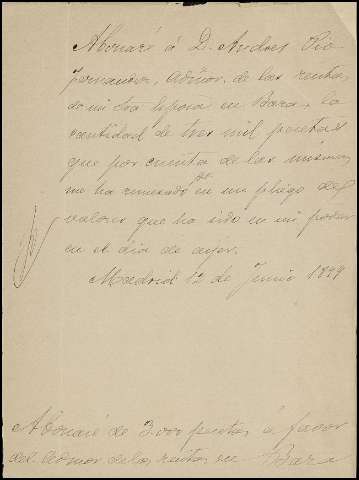 Abonaré á D. Andres Pio
Fernandez, Admor. de las rentas
de mi Sra Esposa en Baza, la
cantidad de tres mil pesetas
que por cuenta de las mismas
me ha remesado en un pliego de
valores que ha sido en mi poder
en el dia de ayer.
Madrid 12 de Junio 1899
Abonaré de 3.000 pesetas á favor
del Admor de las rentas en Baza